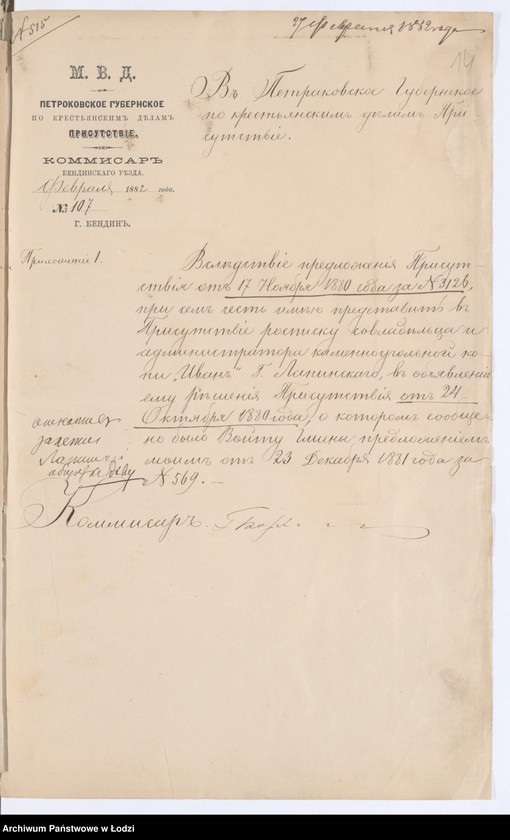 № 515
27 Февраля 1882 года
14
М. В. Д.
ПЕТРОКОВСКОЕ ГУБЕРНСКОЕ
ПО КРЕСТЬЯНСКИМЪ ДѢЛАМЪ
ПРИСУТСТВІЕ.
КОММИСАРЪ
БЕНДИНСКАГО УѢЗДА.
Февраля 1882 года.
№ 107
Г. БЕНДИНЪ.
Въ Петроковское Губернское
по крестьянскимъ дѣламъ При-
сутствіе.
Приложеніе 1.
Вслѣдствіе предложенія Присут-
ствія отъ 17 Ноября 1880 года за № 3126,
при семъ честь имѣю представить въ
Присутствіе росписку совладѣльца и
администратора каменноугольной ко-
пи „Иванъ" Г. Лапинскаго, въ объявленіи
ему рѣшенія Присутствія отъ 24
Октября 1880 года, о которомъ сообще-
но было Войту гмины предложеніемъ
моимъ отъ 23 Декабря 1881 года за
№ 569. —
Коммисаръ
Archiwum Państwowe w Łodzi